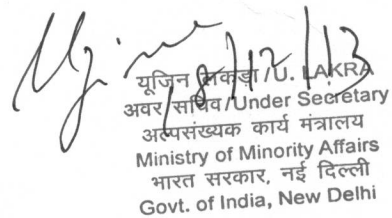 18/12/13
यूजिन लकड़ा/U. LAKRA
अवर सचिव/Under Secretary
अल्पसंख्यक कार्य मंत्रालय
Ministry of Minority Affairs
भारत सरकार, नई दिल्ली
Govt. of India, New Delhi